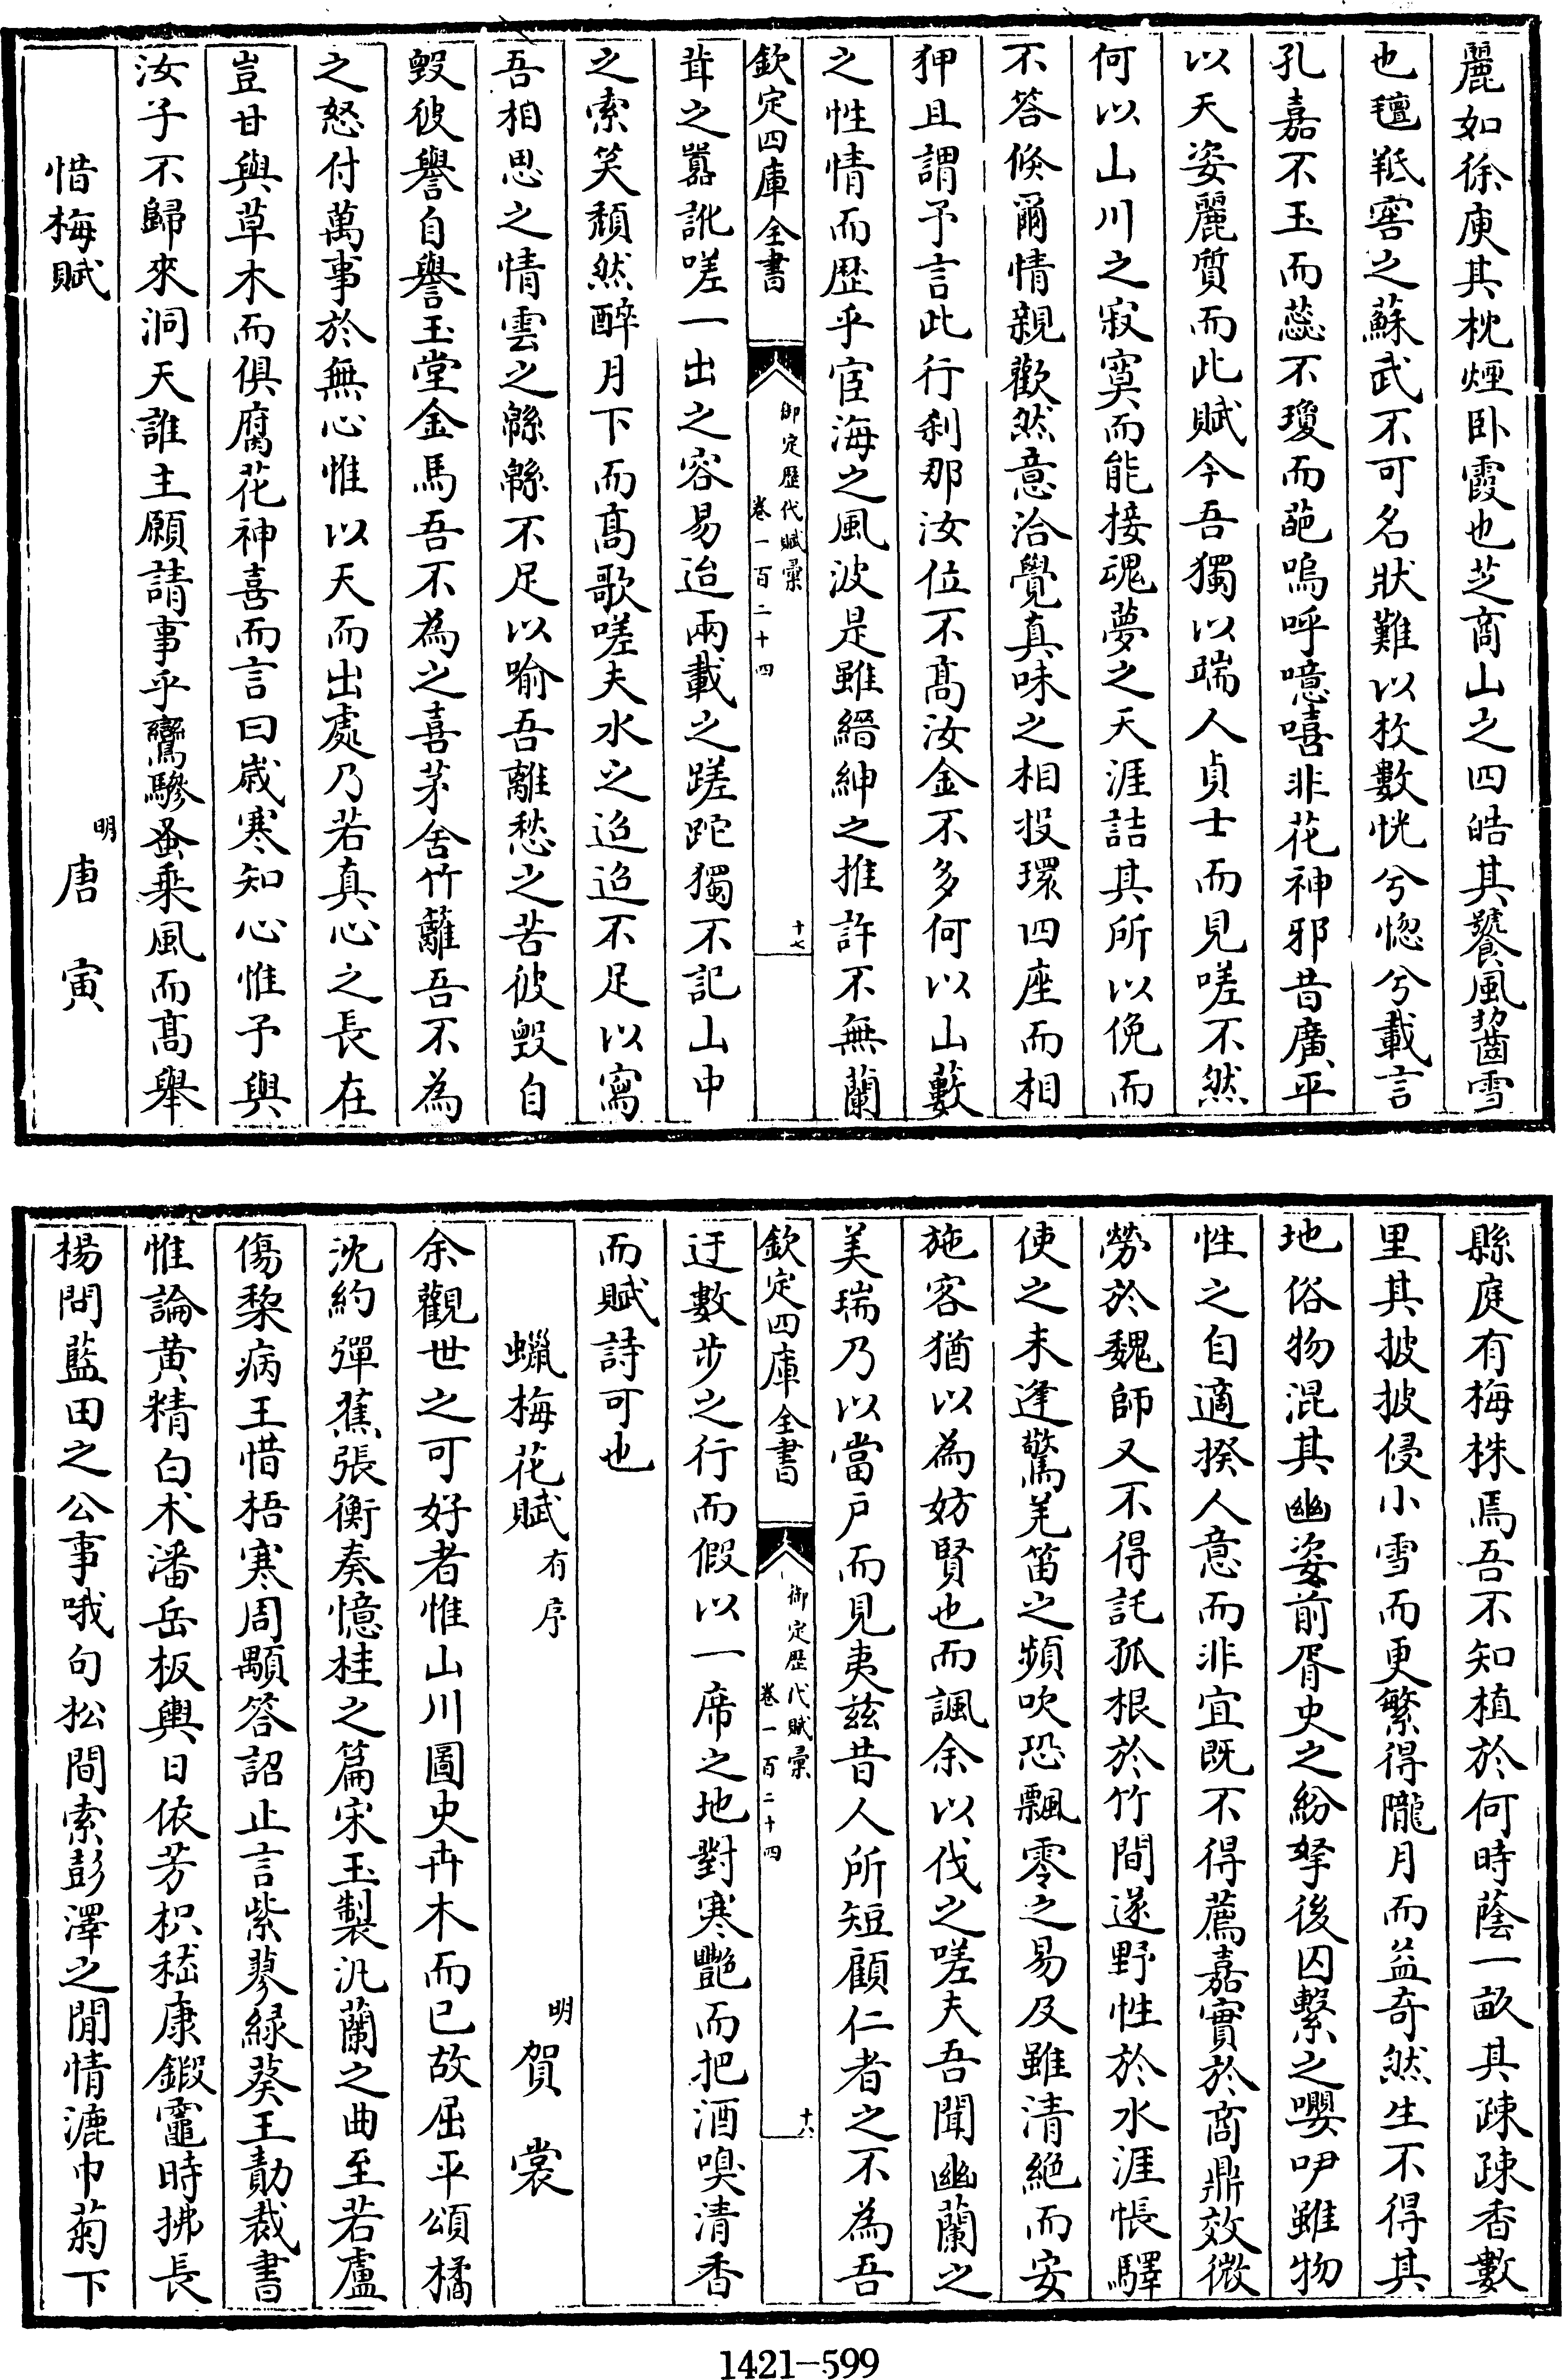 麗如徐庾其枕煙卧霞也芝商山之四皓其餐風齧雪
也氊羝窖之蘇武不可名狀難以枚數恍兮惚兮載言
孔嘉不玉而蕊不瓊而葩嗚呼噫嘻非花神邪昔廣平
以天姿麗質而此賦今吾獨以端人貞士而見嗟不然
何以山川之寂寞而能接魂夢之天涯詰其所以俛而
不答倐爾情親歡然意洽覺真味之相投環四座而相
狎且謂予言此行刹那汝位不髙汝金不多何以山藪
之性情而歴乎宦海之風波是雖縉紳之推許不無蘭
欽定四庫全書
御定歴代賦彙
卷一百二十四
十七
茸之嚚訛嗟一出之容易迨兩載之蹉跎獨不記山中
之索笑頹然醉月下而髙歌嗟夫水之迢迢不足以寫
吾相思之情雲之緜緜不足以喻吾離愁之苦彼毀自
毀彼譽自譽玉堂金馬吾不為之喜茅舍竹籬吾不為
之怒付萬事於無心惟以天而出處乃若真心之長在
豈甘與草木而俱腐花神喜而言曰歳寒知心惟予與
汝子不歸來洞天誰主願請事乎鸞驂蚤乗風而髙舉
惜梅賦
明
唐寅
縣庭有梅株焉吾不知植於何時蔭一畝其疎疎香數
里其披披侵小雪而更繁得隴月而益奇然生不得其
地俗物混其幽姿前胥史之紛拏後囚繫之嚶吚雖物
性之自適揆人意而非宜既不得薦嘉實於商鼎效微
勞於魏師又不得託孤根於竹間遂野性於水涯悵驛
使之未逢驚羌笛之頻吹恐飄零之易及雖清絶而安
施客猶以為妨賢也而諷余以伐之嗟夫吾聞幽蘭之
美瑞乃以當户而見夷兹昔人所短顧仁者之不為吾
欽定四庫全書
御定歴代賦彙
卷一百二十四
十八
迂數步之行而假以一席之地對寒艷而把酒嗅清香
而賦詩可也
蠟梅花賦有序
明
賀裳
余觀世之可好者惟山川圖史卉木而已故屈平頌橘
沈約彈蕉張衡奏憶桂之篇宋玉製汎蘭之曲至若盧
傷棃病王惜梧寒周顒答詔止言紫蓼緑葵王勣裁書
惟論黄精白术潘岳板輿日依芳枳嵇康鍜竈時拂長
楊問藍田之公事哦句松間索彭澤之閒情漉巾菊下
1421—599